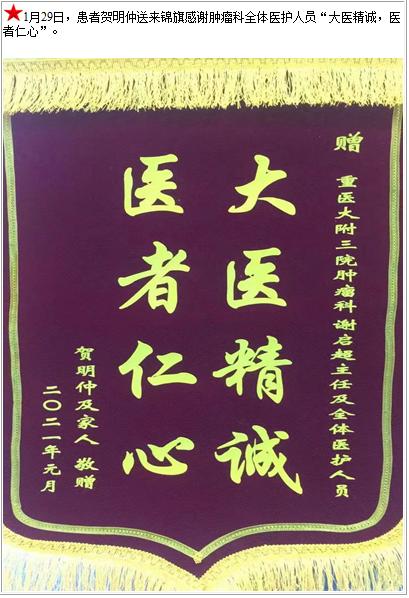 ★1月29日，患者贺明仲送来锦旗感谢肿瘤科全体医护人员“大医精诚，医
者仁心”。
赠 重医大附三院肿瘤科谢启超主任及全体医护人员
大医精诚
医者仁心
贺明仲及家人 敬赠
二〇二一年元月